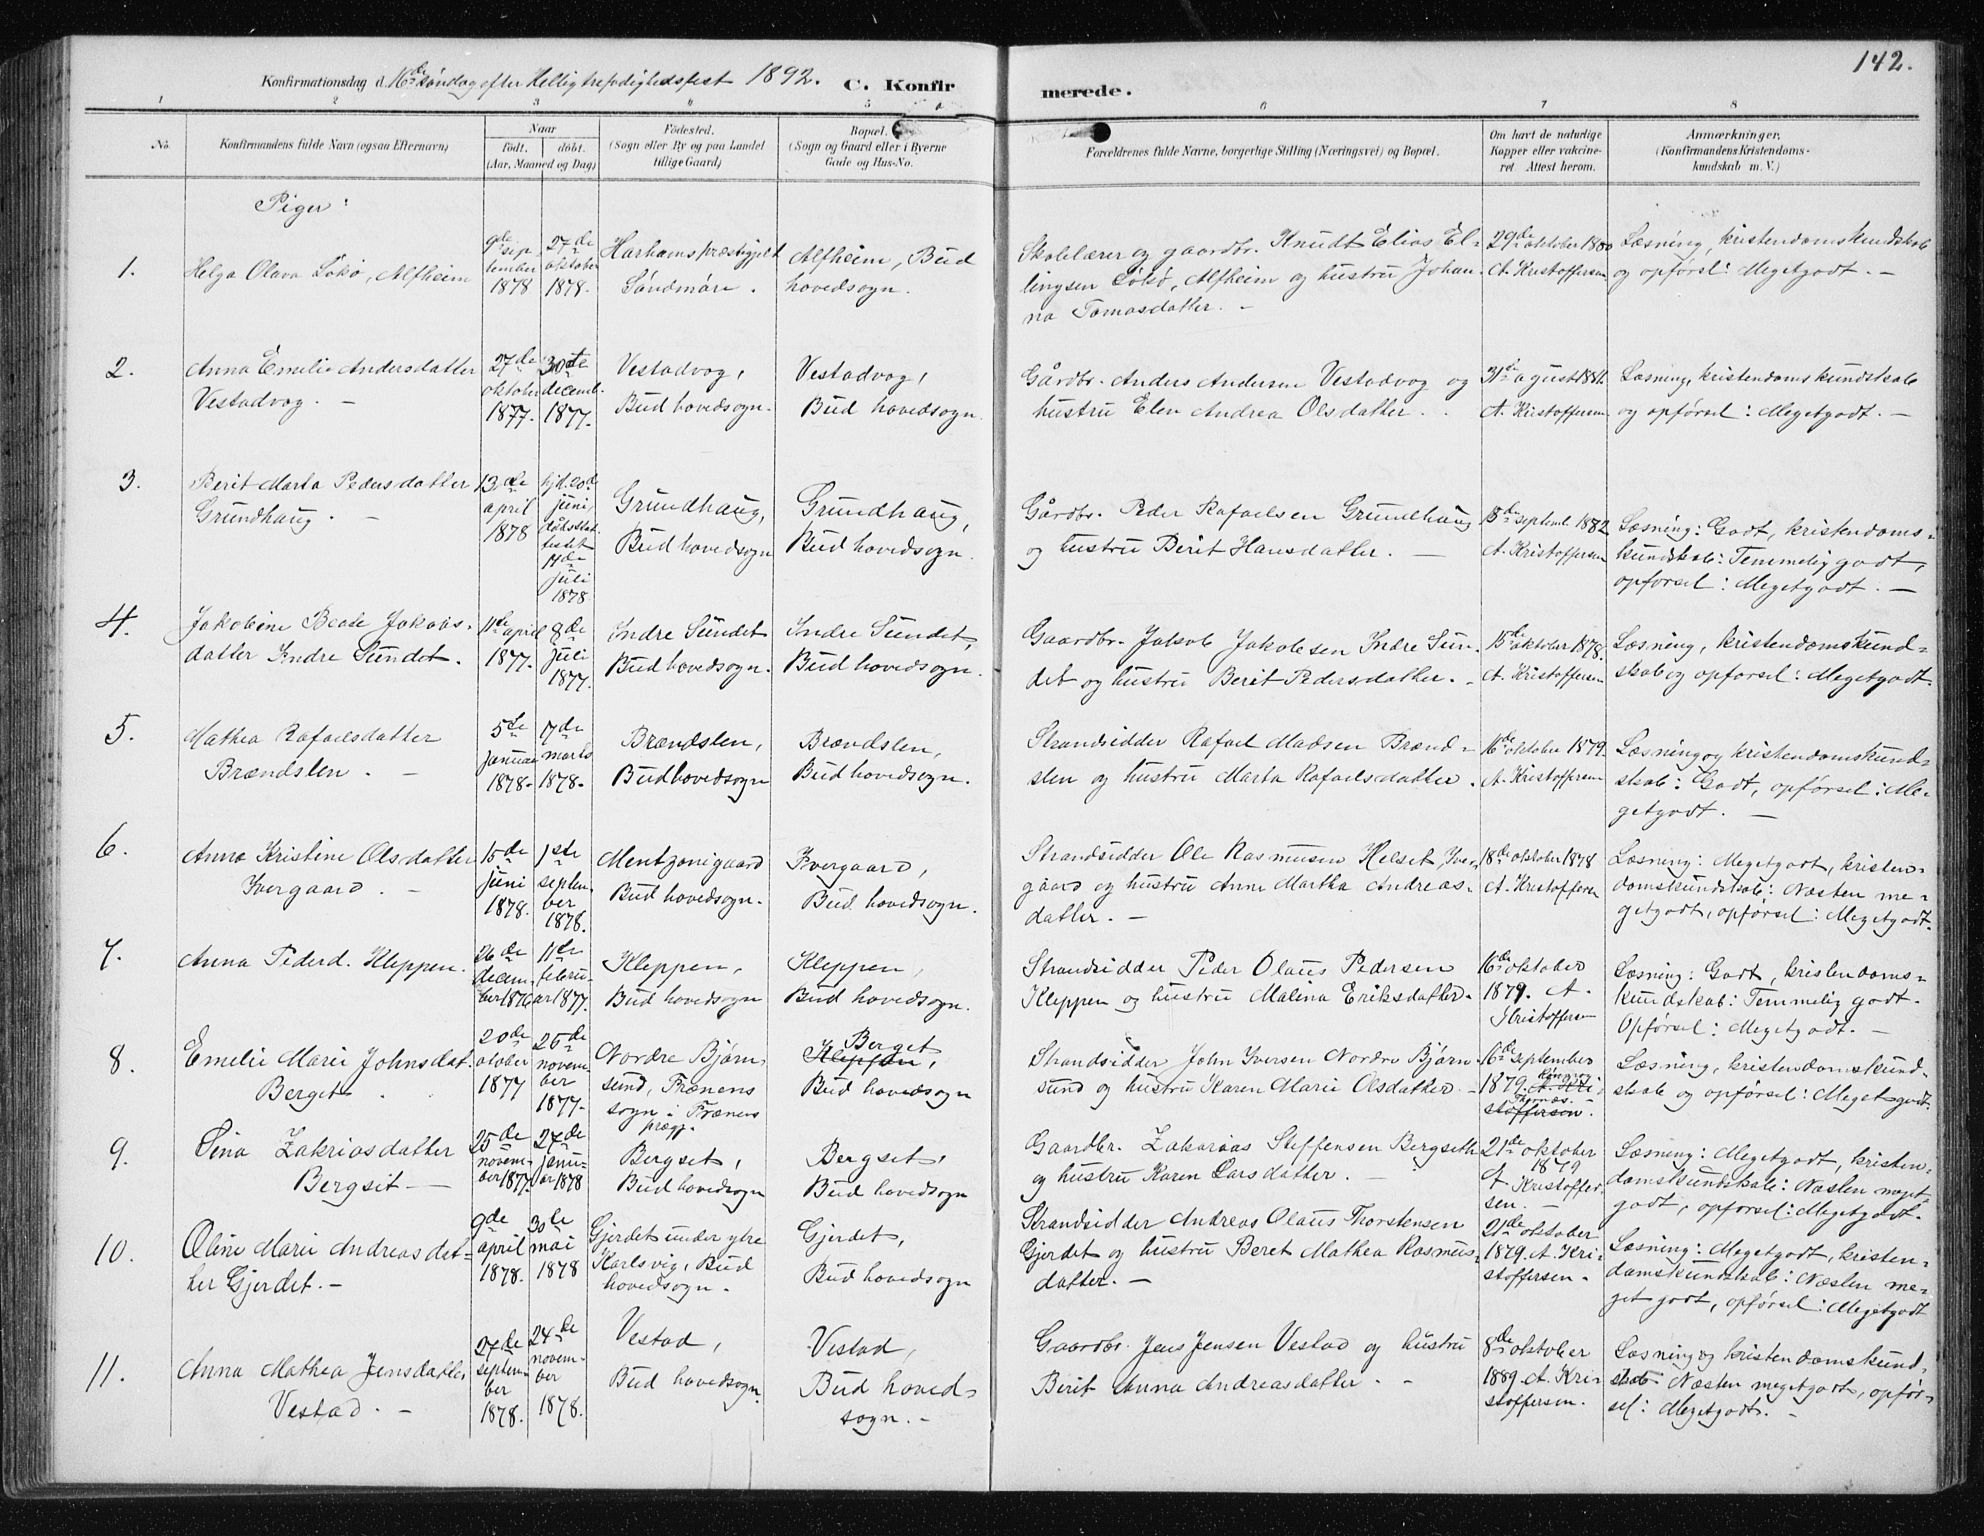 142.
Konfirmationsdag d. 16de søndag efter Helligtrefoldighedsfest 1892. C. Konfirmerede.
1 2 3 4 5 6 7 8
No. Konfirmandens fulde Navn (ogsaa Efternavn) Naar født. døbt. (Aar, Maaned og Dag) Födested. (Sogn eller By og paa Landet tillige Gaard) Bopæl. (Sogn og Gaard eller i Byerne Gade og Hus-No. Forældrenes fulde Navne, borgerlige Stilling (Næringsvei) og Bopæl. Om havt de naturlige Kopper eller vaccineret. Attest herom. Anmærkninger, (Konfirmandens Kristendomskundskab m. V.)
Piger:
1. Helga Olava Lökö, Alfheim
9de september 1878
27de oktober 1878.
Harhams præstegjeld
Søndmøre.
Alfheim, Bud
hovedsogn.
Skolelærer og gaardbr. Knudt Elias El-
lingsen Løkø, Alfheim og hustru Johan-
na Tomasdatter. -
29de oktober 1880
A. Kristoffersen
Læsning, kristendomskundskab
og opførsel: Megetgodt. -
2. Anna Emelie Andersdatter
Vestadvog. -
27de oktober 1877.
30te decemb. 1877.
Vestadvog,
Bud hovedsogn.
Vestadvog,
Bud hovedsogn.
Gårdbr. Anders Andersen Vestadvog og
hustru Elen Andrea Olsdatter.
31te agust 1881.
A. Kristoffersen
Læsning, kristendomskundskab
og opførsel: Megetgodt. -
3. Berit Marta Pedersdatter
Grundhaug. -
13de april 1878
hjd. 20de juni,
stadfestet
14de juli 1878
Grundhaug,
Bud hovedsogn
Grundhaug,
Bud hovedsogn.
Gårdbr. Peder Rafaelsen Grundhaug
og hustru Berit Hansdatter. -
15de septemb 1882
A. Kristoffersen
Læsning: Godt, kristendoms-
kundskab: Temmelig godt,
opførsel: Megetgodt. -
4. Jakobine Beate Jakobs-
datter Indre Sundet.
11te april 1877.
8de juli 1877.
Indre Sundet
Bud hovedsogn.
Indre Sundet,
Bud hovedsogn.
Gaardbr. Jakob Jakobsen Indre Sun-
det og hustru Berit Pedersdatter. -
15de oktober 1878.
A. Kristoffersen
Læsning, kristendomskund-
skab og opførsel: Megetgodt.
5. Mathea Rafaelsdatter
Brændslen. -
5te januar 1878.
17de marts 1878.
Brændslen,
Bud hovedsogn
Brændslen,
Bud hovedsogn.
Strandsidder Rafael Madsen Brænd-
slen og hustru Marta Rafaelsdatter.
16de oktober 1879.
A. Kristoffersen
Læsning og kristendomskund-
skab: Godt, opførsel: Me-
getgodt. -
6. Anna Kristine Olsdatter
Ivergaard. -
15de juni 1878.
1ste september 1878.
Mentzonigaard
Bud hovedsogn.
Ivergaard,
Bud hovedsogn.
Strandsidder Ole Rasmusen Helset, Iver-
gaard og hustru Anne Martha Andreas-
datter. -
18de oktober 1878
A. Kristoffersen
Læsning: Megetgodt, kristen-
domskundskab: Næsten me-
getgodt, opførsel: Megetgodt.
7. Anna Pederd. Kleppen.
26de december 1876
11te februar 1877.
Kleppen,
Bud hovedsogn
Kleppen,
Bud hovedsogn.
Strandsidder Peder Olaus Pedersen
Kleppen og hustru Malina Eriksdatter.
16de oktober
1879. A.
Kristoffersen
Læsning: Godt, kristendoms-
kundskab: Temmelig godt.
Opførsel: Megetgodt. -
8. Emelie Marie Johnsdat.
Berget
20de oktober 1877
25de november 1877.
Nordre Bjørn-
sund, Frænens
sogn i Frænens
prægj.
Berget
Kleppen,
Bud hovedsogn
Strandsidder John Iversen Nordre Bjørn-
sund og hustru Karen Marie Olsdatter. -
16de september
1879. A. Kri-
stoffersen.
Læsning, kristendomskund-
skab og opførsel: Megetgodt.
9. Sina Zakriasdatter
Bergset -
25de november 1877.
27de januar 1878
Bergset,
Bud hovedsogn
Bergset,
Bud hovedsogn
Gaardbr. Zakarias Steffensen Bergseth
og hustru Karen Larsdatter. -
21de oktober
1879
A Kristoffer-
sen. -
Læsning: Megetgodt, kristen-
domskundskab: Næsten meget-
godt, opførsel: Megetgodt.
10. Oline Marie Andreasdat-
ter Gjerdet. -
9de april 1878.
30te mai 1878
Gjerdet under ytre
Karlsvig, Bud
hovedsogn.
Gjerdet,
Bud hovedsogn
Strandsidder Andreas Olaus Thorstensen
Gjerdet og hustru Beret Mathea Rasmus-
datter. -
21de oktober
1879. A. Kri-
stoffersen.
Læsning: Megetgodt, kristen-
domskundskab: Næsten me-
get godt, opførsel: Megetgodt
11. Anna Mathea Jensdatter
Vestad. -
27de september 1878.
24de november 1878.
Vestad,
Bud hovedsogn.
Vestad,
Bud hoved-
sogn. -
Gaardbr. Jens Jensen Vestad og hustru
Berit Anna Andreasdatter. -
8de oktober
1889. A. Kri-
stoffersen.
Læsning og kristendomskund-
skab: Næsten megetgodt, opfør-
sel: Megetgodt. -